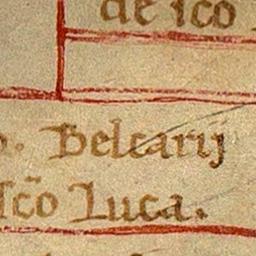 de sc̃o
Belcarij
sc̃o Luca.